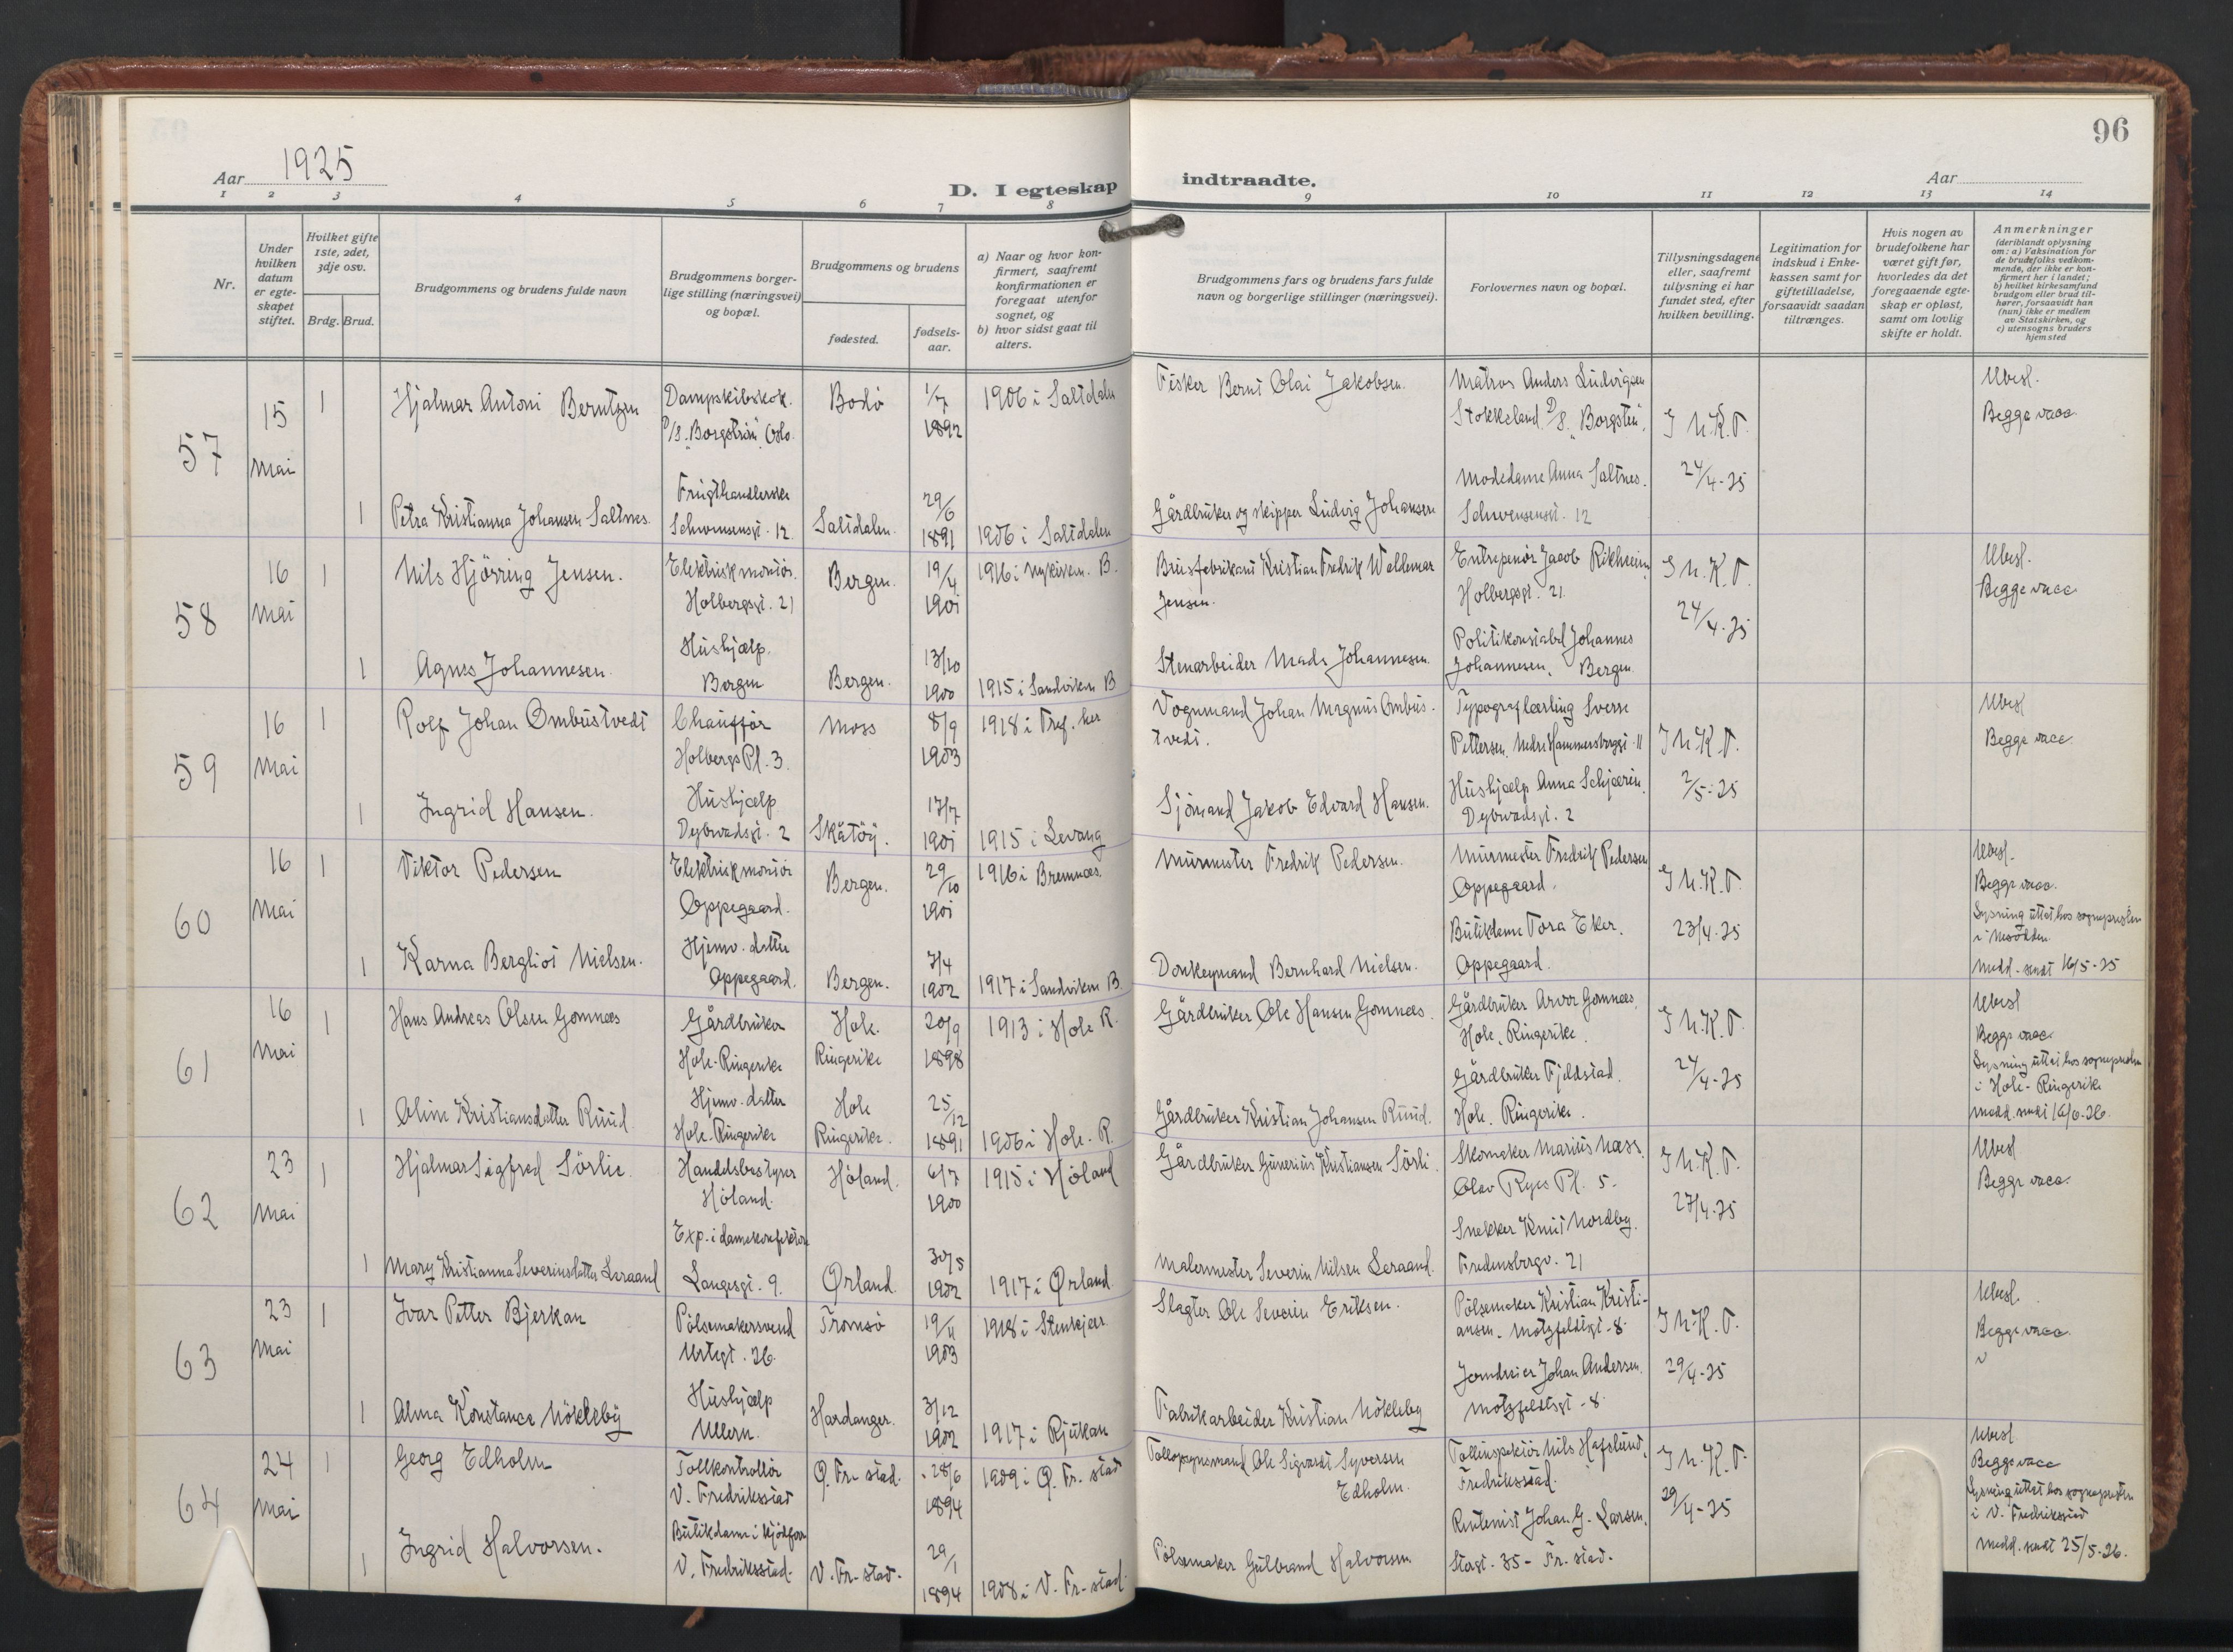 96
Aar 1925
D. I egteskap indtraadte.
Aar
1 2 3 4 5 6 7 8 9 10 11 12 13 14
Nr.
Under
hvilken
datum
er egte-
skapet
stiftet.
Hvilket gifte
1ste, 2det,
3dje osv.
Brdg. Brud.
Brudgommens og brudens fulde navn
Brudgommens borger-
lige stilling (næringsvei)
og bopæl.
Brudgommens og brudens
fødested.
fødsels-
aar.
a) Naar og hvor kon-
firmert, saafremt
konfirmationen er
foregaat utenfor
sognet, og
b) hvor sidst gaat til
alters.
Brudgommens fars og brudens fars fulde
navn og borgerlige stillinger (næringsvei).
Forlovernes navn og bopæl.
Tillysningsdagene
eller, saafremt
tillysning ei har
fundet sted, efter
hvilken bevilling.
Legitimation for
indskud i Enke-
kassen samt for
giftetilladelse,
forsaavidt saadan
tiltrænges.
Hvis nogen av
brudefolkene har
været gift før,
hvorledes da det
foregaaende egte-
skap er opløst,
samt om lovlig
skifte er holdt.
Anmerkninger
(deriblandt oplysning
om: a) Vaksination for
de brudefolks vedkom-
mende, der ikke er kon-
firmert her i landet;
b) hvilket kirkesamfund
brudgom eller brud til-
hører, forsaavidt han
(hun) ikke er medlem
av Statskirken, og
c) utensogns bruders
hjemsted
57
15
Mai
1
Hjalmar Antoni Berntzen
Dampskibskok.
D/S. "Borgsten", Oslo.
Bodö
1/7
1892
1906 i Saltdalen
Fisker Bernt Olai Jakobsen.
Matros Anders Ludvigsen
Stokkeland D/S. "Borgsten".
J N.K.T.
24/4-25
Ubesl.
Begge vacc.
1
Petra Kristianna Johansen Saltnes.
Frugthandlerske
Schwensensgt. 12
Saltdalen.
29/6
1891
1906 i Saltdalen
Gårdbruker og skipper Ludvig Johansen
Modedame Anna Saltnes.
Schwensensgt. 12
58
16
Mai
1
Nils Hjörring Jensen.
Elektriskmontör.
Holbergsgt. 21
Bergen.
19/4
1901
1916 i Nykirken. B.
Brusfabrikant Kristian Fredrik Waldemar
Jensen.
Entrepenör Jacob Rikheim
Holbergsgt. 21
J N.K.T.
24/4-25
Ubesl.
Begge vacc
1
Agnes Johannesen.
Hushjælp.
Bergen
Bergen.
13/10
1900
1915 i Sandviken B
Stenarbeider Mads Johannesen.
Politikonstabel Johannes
Johannesen, Bergen.
59
16
Mai
1
Rolf Johan Ombustvedt
Chaufför
Holbergs Pl. 3.
Moss
8/9
1903
1918 i Tref. her
Vognmand Johan Magnus Ombus-
tvedt.
Typograflærling Sverre
Pettersen, Nedre Hammersborggt. 11
J N.K.T.
2/5-25
Ubesl
Begge vacc.
1
Ingrid Hansen.
Hushjælp
Dybwadsgt. 2
Skåtöy.
17/7
1901
1915 i Levang
Sjömand Jakob Edvard Hansen.
Hushjælp Anna Schjærin.
Dybwadsgt. 2
60
16
Mai
1
Viktor Pedersen
Elektriskmontör
Oppegaard.
Bergen.
29/10
1901
1916 i Bremnæs.
Murmester Fredrik Pedersen.
Murmester Fredrik Pedersen
Oppegaard.
J N.K.T.
23/4-25
Ubesl.
Begge vacc.
Lysning uttat hos sognepresten
i Nesodden.
Medd. sendt 16/5-25
1
Karna Bergliot Nielsen.
Hjemv. datter
Oppegaard.
Bergen.
7/4
1902
1917 i Sandviken B.
Donkeymand Bernhard Nielsen.
Butikdame Tora Eker.
Oppegaard.
61
16
Mai
1
Hans Andreas Olsen Gomnæs
Gårdbruker
Hole-Ringerike
Hole.
Ringerike
20/9
1898
1913 i Hole R.
Gårdbruker Ole Hansen Gomnæs.
Gårdbruker Arvor Gomnæs
Hole. Ringerike.
J N.K.T.
24/4-25
Ubesl
Begge vacc.
Lysning uttat hos sognepresten
i Hole-Ringerike
1
Oline Kristiansdatter Ruud.
Hjemv. datter
Hole-Ringerike
Hole
Ringerike.
25/12
1891
1906 i Hole. R.
Gårdbruker Kristian Johansen Ruud.
Gårdbruker Fjeldstad.
Hole. Ringerike.
62
23
Mai
1
Hjalmar Sigfred Sörlie.
Handelsbestyrer
Höland.
Höland.
6/7
1900
1915 i Höland
Gårdbruker Gunerius Kristiansen Sörli.
Skomaker Marius Næss.
Olav Ryes Pl. 5.
J N.K.T.
27/4-25
Ubesl
Begge vacc.
1
Mary Kristianna Severinsdatter Leraand
Exp. i damekonfektion
Langesgt. 9.
Ørland.
30/5
1902
1917 i Ørland.
Malermester Severin Nilsen Leraand.
Snekker Knut Nordby.
Fredensborgv. 21
63
23
Mai
1
Ivar Petter Bjerkan
Pölsemakersvend
Urtegt. 26.
Tromsö
19/11
1903
1918 i Stenkjær
Slagter Ole Severin Eriksen.
Pölsemaker Kristian Kristi-
ansen. Motzfeldtsgt-8.
J N.K.T.
29/4-25
Ubesl.
Begge vacc.
1
Alma Konstance Nökleby
Hushjælp
Ullern.
Hardanger.
3/12
1902
1917 i Rjukan
Fabrikarbeider Kristian Nökleby
Jerndreier Johan Andersen.
Motzfeldtsgt-8.
64
24
Mai
1
Georg Edholm
Tollkontrollör
V. Fredriksstad
Q. Fr-stad.
28/6
1894
1909 i Q. Fr. stad
Tollopsynsmand Ole Sigvardt Syversen
Edholm.
Tollinspektör Nils Hafslund,
Fredriksstad.
J N.K.T.
29/4-25
Ubesl
Begge vacc
Lysning uttat hos sognepresten
i V. Fredriksstad
Medd. sendt 25/5-26.
1
Ingrid Halvorsen.
Butikdame i kjödforr.
V. Fredriksstad.
V. Fr-stad.
29/1
1894
1908 i V. Fr-stad.
Pölsemaker Gulbrand Halvorsen
Rentenist Johan G. Larsen.
Storgt. 35- Fr. stad.